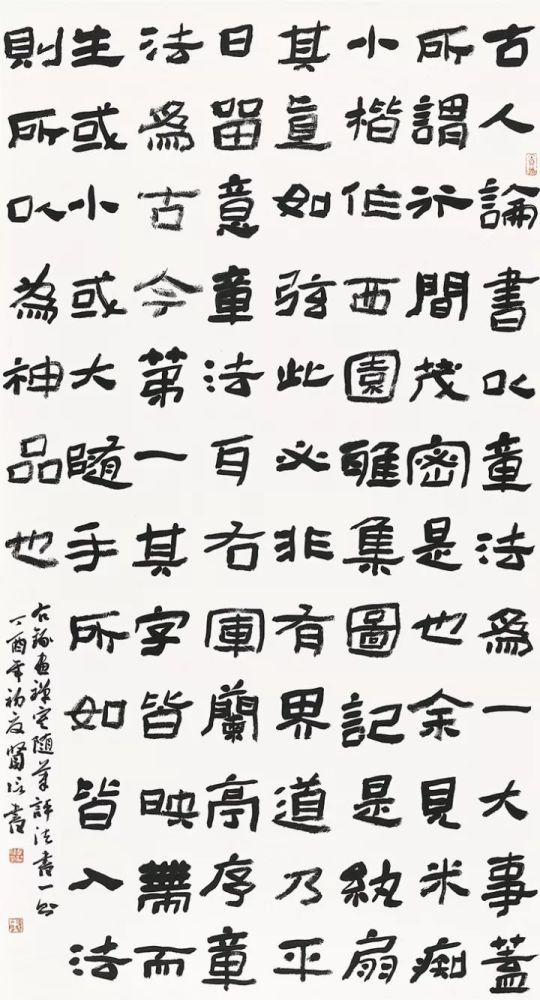 古人論書以章法爲一大事蓋
所謂行間茂密是也余見米痴
小楷作西園雅集圖記是紈扇
其直如弦此必非有界道乃平
日留意章法耳右軍蘭亭序章
法爲古今第一其字皆映帶而
生或小或大隨手所如皆入法
則所以為神品也
右錄畫禪室隨筆評法書一則
丁酉年初夏書